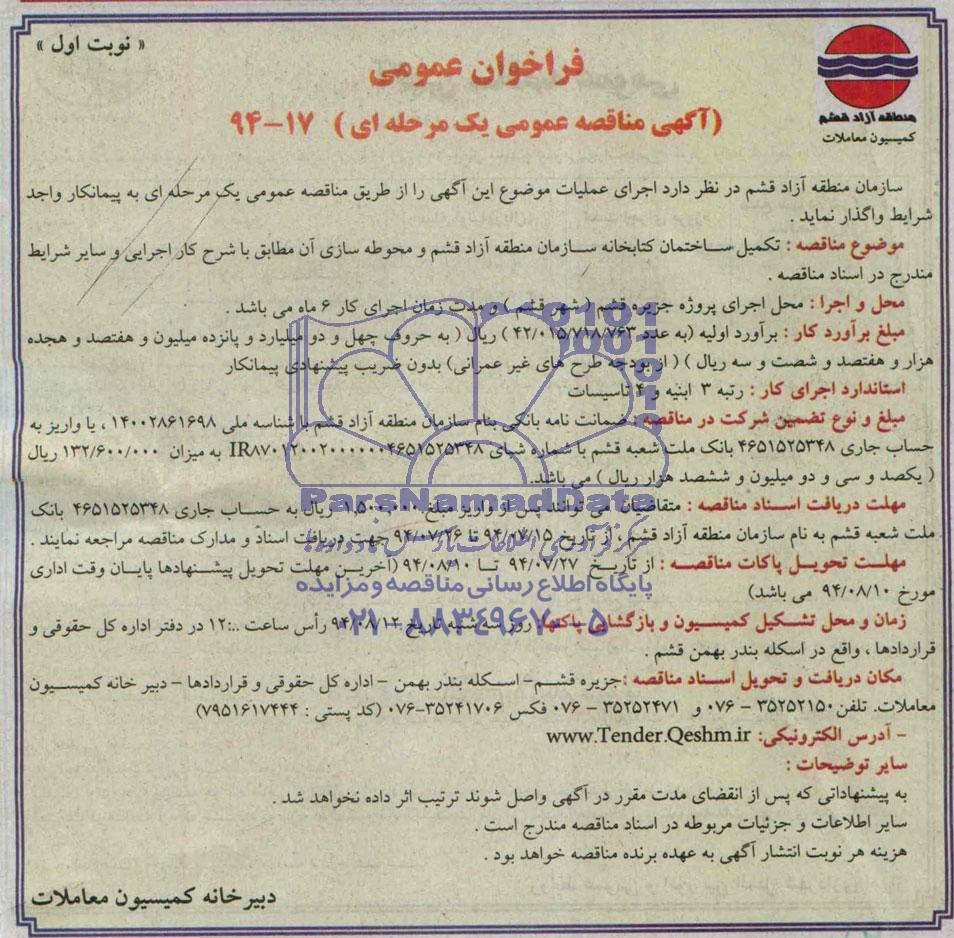 « نوبت اول »
منطقه آزاد قشم
کمیسیون معاملات
فراخوان عمومی
(آگهی مناقصه عمومی یک مرحله ای ) ۱۷-۹۴
سازمان منطقه آزاد قشم در نظر دارد اجرای عملیات موضوع این آگهی را از طریق مناقصه عمومی یک مرحله ای به پیمانکار واجد
شرایط واگذار نماید .
موضوع مناقصه : تکمیل ساختمان کتابخانه سازمان منطقه آزاد قشم و محوطه سازی آن مطابق با شرح کار اجرایی و سایر شرایط
مندرج در اسناد مناقصه .
محل و اجرا : محل اجرای پروژه جزیره قشم ( شهر قشم ) و مدت زمان اجرای کار ۶ ماه می باشد .
مبلغ برآورد کار : برآورد اولیه (به عدد ۴۲/۰۱۵/۷۱۸/۷۶۳ ) ریال ( به حروف چهل و دو میلیارد و پانزده میلیون و هفتصد و هجده
هزار و هفتصد و شصت و سه ریال ) ( از بودجه طرح های غیر عمرانی) بدون ضریب پیشنهادی پیمانکار
استاندارد اجرای کار : رتبه ۳ ابنیه و ۴ تاسیسات
مبلغ و نوع تضمین شرکت در مناقصه : ضمانت نامه بانکی بنام سازمان منطقه آزاد قشم با شناسه ملی ۱۴۰۰۲۸۶۱۶۹۸ ، یا واریز به
حساب جاری ۴۶۵۱۵۲۵۳۴۸ بانک ملت شعبه قشم با شماره شبای IR۸۷۰۱۲۰۰۲۰۰۰۰۰۰۴۶۵۱۵۲۵۳۴۸ به میزان ۱۳۲/۶۰۰/۰۰۰ ریال
( یکصد و سی و دو میلیون و ششصد هزار ریال ) می باشد.
ParsNamadData
مهلت دریافت اسناد مناقصه : متقاضیان می توانند پس از واریز مبلغ ۱,۵۰۰,۰۰۰ ریال به حساب جاری ۴۶۵۱۵۲۵۳۴۸ بانک
ملت شعبه قشم به نام سازمان منطقه آزاد قشم ، از تاریخ ۹۴/۰۷/۱۵ تا ۹۴/۰۷/۲۶ جهت دریافت اسناد و مدارک مناقصه مراجعه نمایند .
مهلت تحویل پاکات مناقصه : از تاریخ ۹۴/۰۷/۲۷ تا ۹۴/۰۸/۱۰ (آخرین مهلت تحویل پیشنهادها پایان وقت اداری
پایگاه اطلاع رسانی مناقصه و مزایده
مورخ ۹۴/۰۸/۱۰ می باشد)
۰۲۱-۸۸۳۴۹۶۷۰-۵
زمان و محل تشکیل کمیسیون و بازگشایی پاکتها: روز سه شنبه تاریخ ۹۴/۰۸/۱۲ رأس ساعت ۱۲:۰۰ در دفتر اداره کل حقوقی و
قراردادها ، واقع در اسکله بندر بهمن قشم .
مکان دریافت و تحویل اسناد مناقصه :جزیره قشم- اسکله بندر بهمن - اداره کل حقوقی و قراردادها - دبیر خانه کمیسیون
معاملات. تلفن ۳۵۲۵۲۱۵۰ - ۰۷۶ و ۳۵۲۵۲۴۷۱ - ۰۷۶ فکس ۳۵۲۴۱۷۰۶-۰۷۶ (کد پستی : ۷۹۵۱۶۱۷۴۴۴)
- آدرس الکترونیکی: www.Tender.Qeshm.ir
سایر توضیحات :
به پیشنهاداتی که پس از انقضای مدت مقرر در آگهی واصل شوند ترتیب اثر داده نخواهد شد .
سایر اطلاعات و جزئیات مربوطه در اسناد مناقصه مندرج است .
هزینه هر نوبت انتشار آگهی به عهده برنده مناقصه خواهد بود .
دبیرخانه کمیسیون معاملات